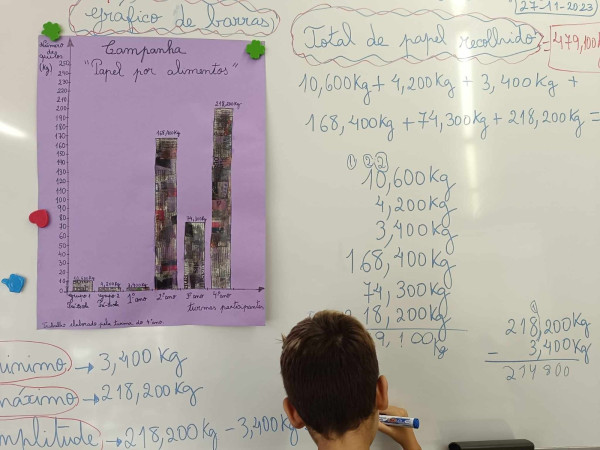 gráfico de barras
(27-11-2023)
Número de quilos (kg)
Campanha
"Papel por alimentos"
250
240
230
220
210
200
190
180
170
160
150
140
130
120
110
100
90
80
70
60
50
40
30
20
10
0
4,200kg
168,400kg
74,300kg
218,200kg
grupo 1
grupo 2
1ºano
2ºano
3ºano
4ºano
turmas participantes
Trabalho elaborado pela turma do 4ºano
Total de papel recolhido = 479,100
10,600Kg + 4,200Kg + 3,400Kg +
168,400Kg + 74,300Kg + 218,200Kg =
1 2 2
10,600Kg
4,200Kg
3,400Kg
168,400Kg
74,300Kg
18,200Kg
9,100
kg
218,200Kg
- 3,400Kg
214800
→ 3,400 Kg
máximo → 218,200Kg
mplitude → 218,200Kg - 3,400K